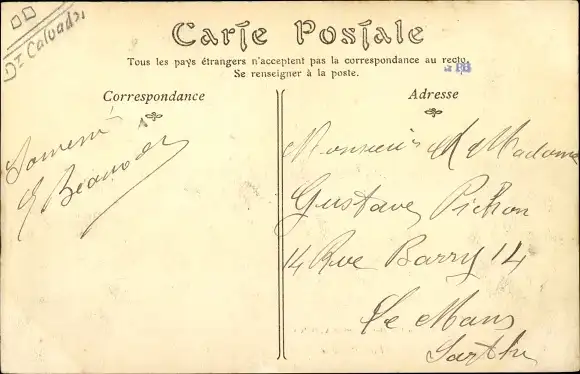 Dt Calvados
Carte Postale
Tous les pays étrangers n'acceptent pas la correspondance au recto.
Se renseigner à la poste.
Correspondance
Adresse
Monsieur & Madame
Gustave Pichon
14 Rue Barry 14
Le Mans
Sarthe